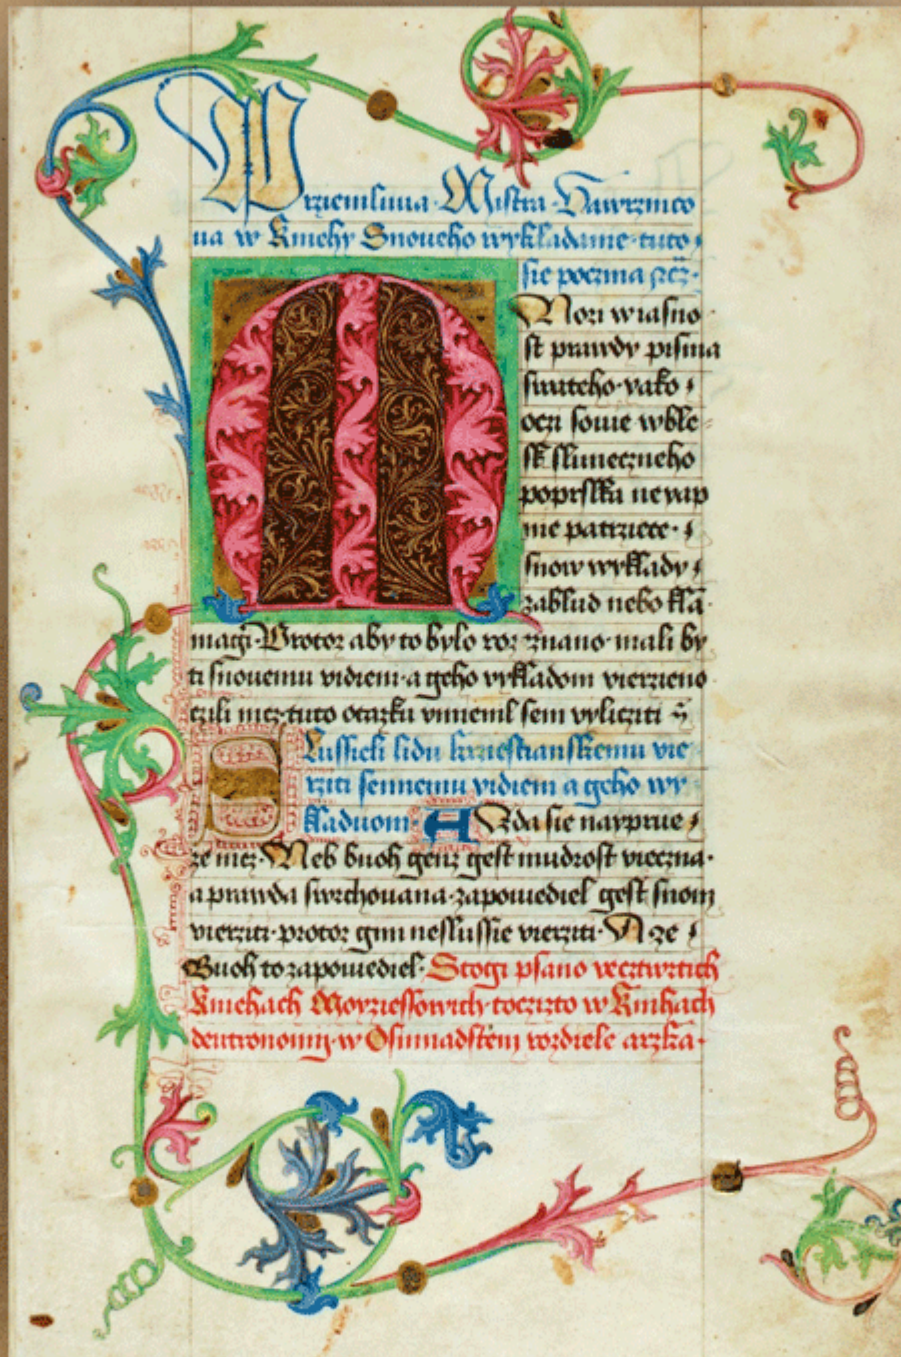 Prziemluua Mistra Vawrzinco
ua w Kniehy Snoueho wykladanie tuto
sie poczina
Mozi w iasno
st prawdy pisma
swateho yako
oczi sowie w ble
sk sluneczneho
poprslku ne
patrziece
snow wyklady
zabludnebo kla
Protoz aby to bylo roz znano mali by
ti snouemu vidieni a geho vykladom vierzieno
czili nicz tuto otazku vmienil sem vylicziti
Slussieli lidu krziestianskemu vie
rziti sennemu vidieni a geho wy
kladuom A Zda sie nayprue
ze nicz Neb buoh genz gest mudrost vieczna
a prawda swrchouana zapowiediel gest snom
vierziti protoz gim neslussie vierziti A ze
Buoh to zapowiediel Stogi psano veczwrtich
Kniehach Moyziessowich toczizto w Knihach
deutronomy w Osmnadstem rozdiele arzka